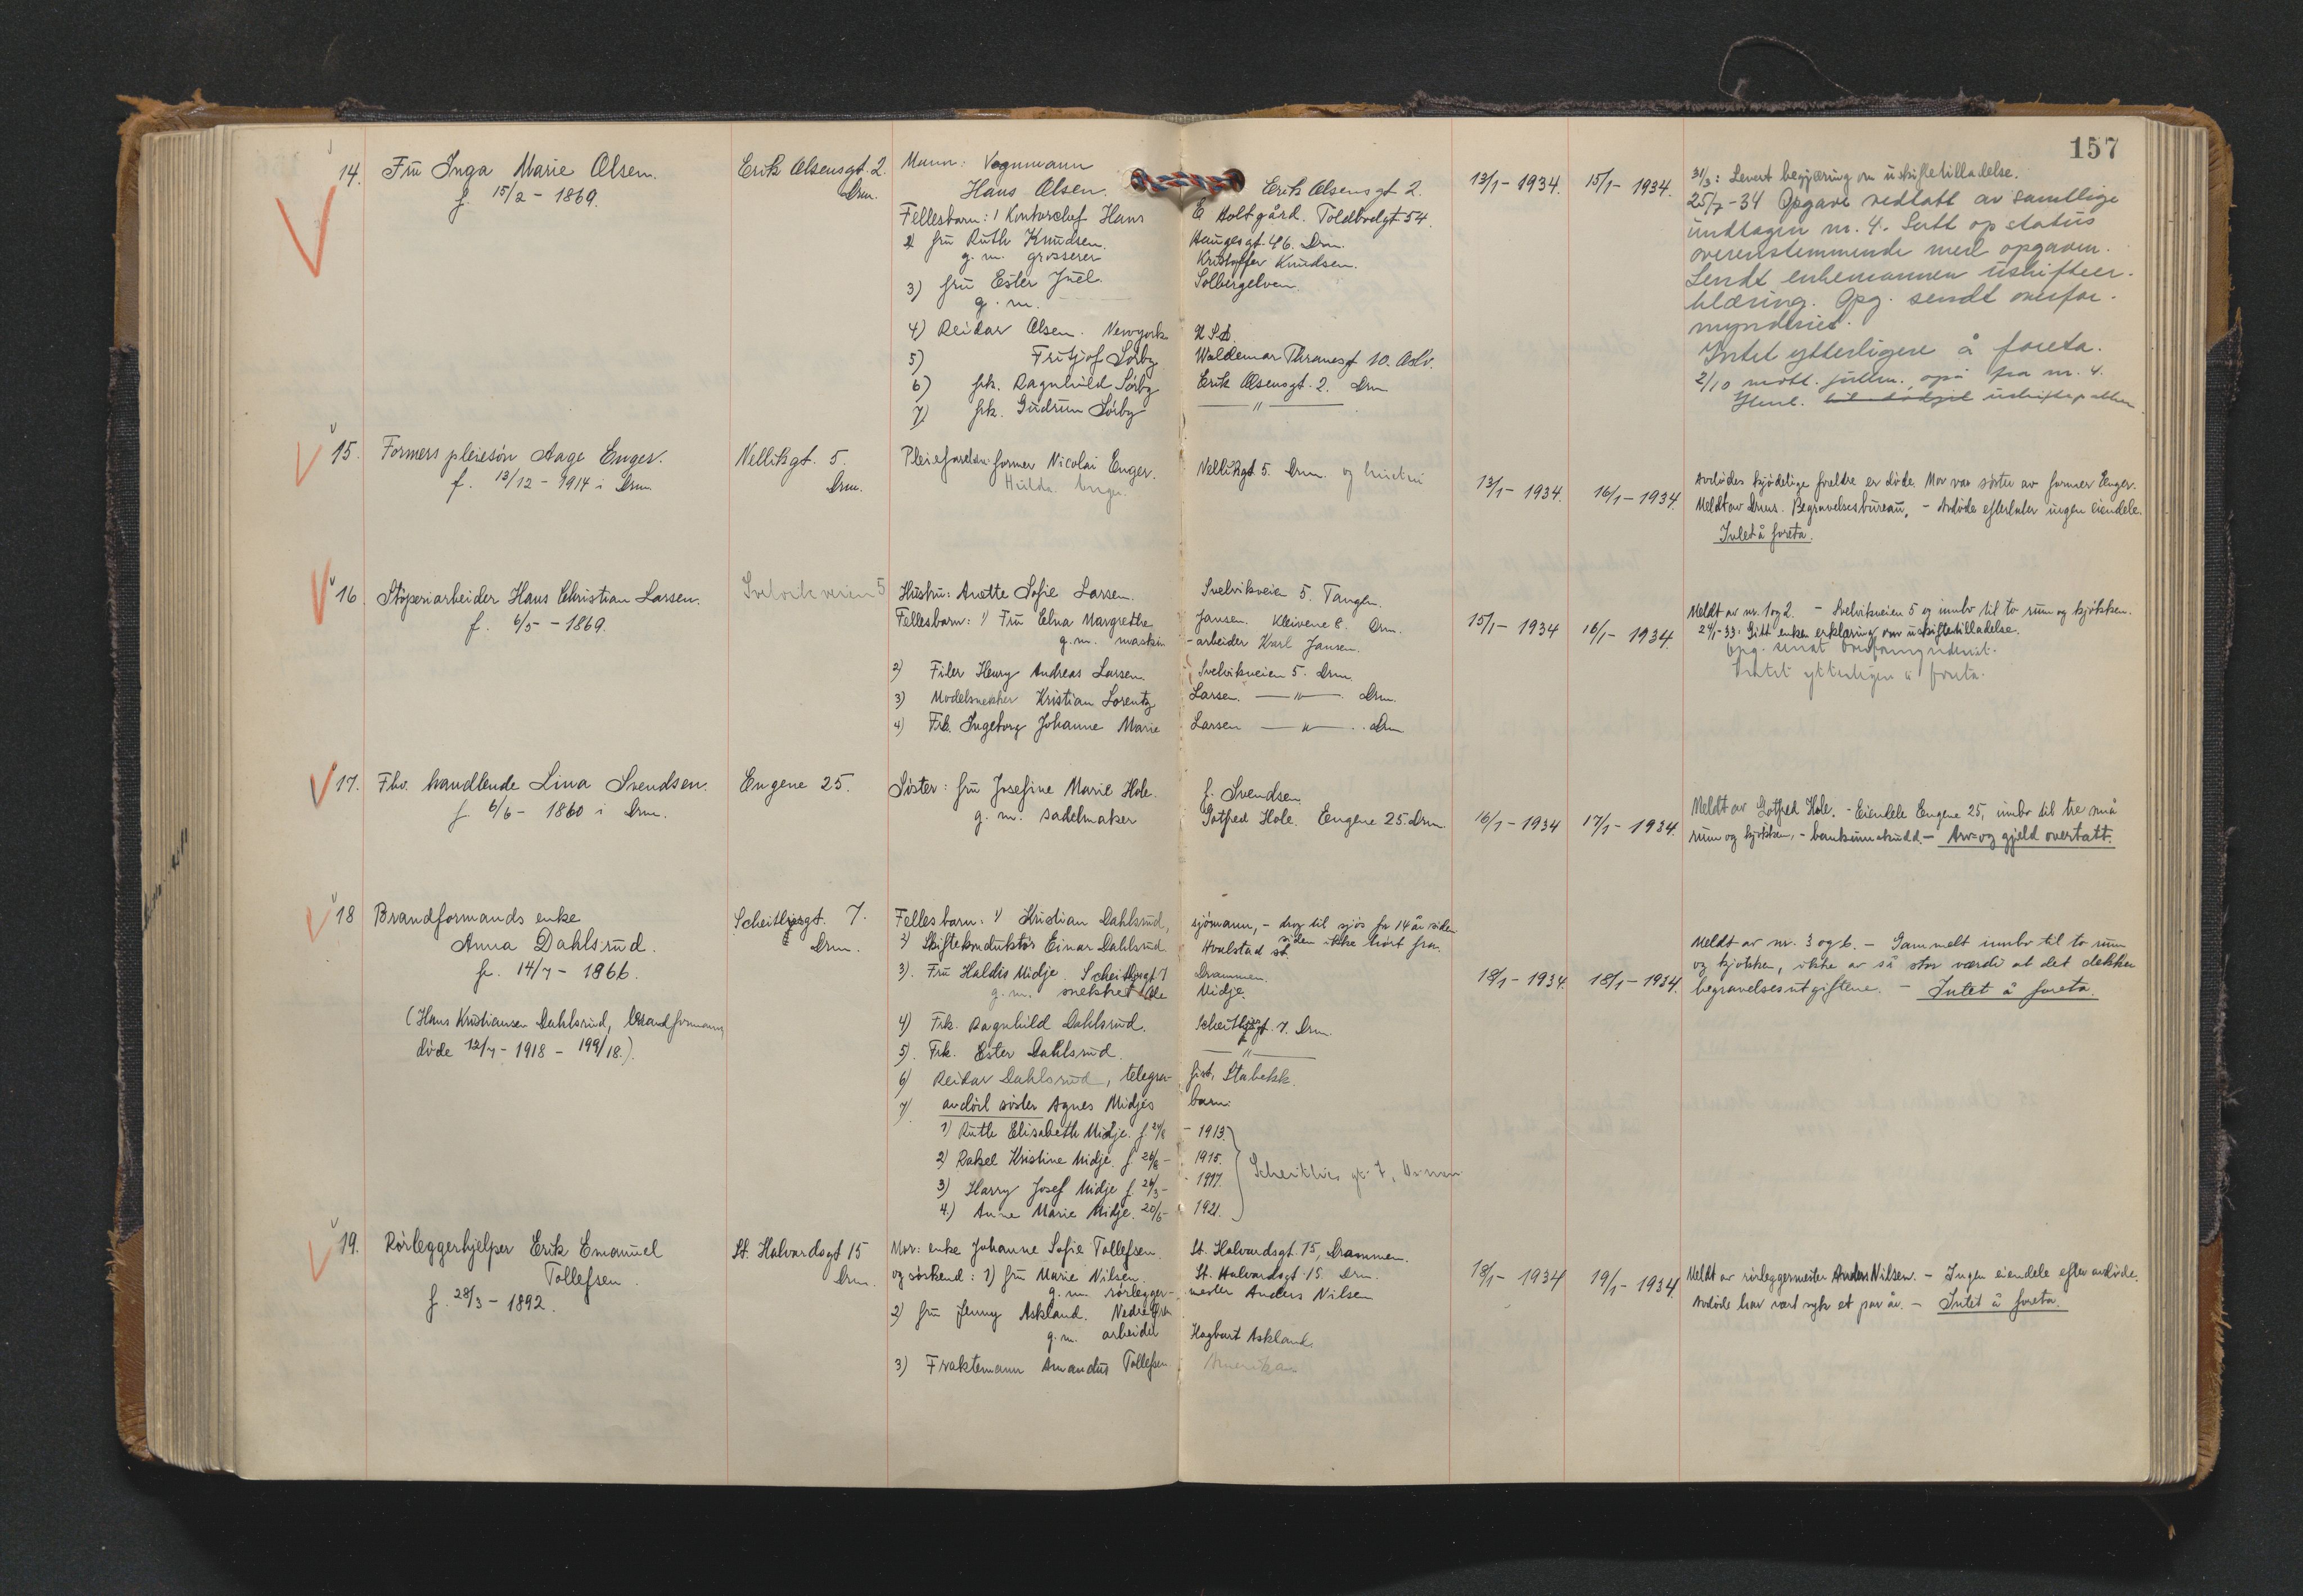 157
14. Fru Inga Marie Olsen. Erik Olsensgt. 2. Mann: Vognmann
f. 15/2 - 1869. Drm. Hans Olsen. Erik Olsensgt 2. 13/1 - 1934. 15/1 - 1934. 31/3: Levert begjæring om uskiftetilladelse.
Fellesbarn: 1 Kontorchef Hans E Holtgård. Toldbodgt 54. 25/7 - 34 Opgave vedtatt av samtlige
2) fru Ruth Knudsen. Haugesgt. 46. Drm. undtagen nr. 4. Satt op status
g. m. grosserer Kristoffer Knudsen. overenstemmende med opgaven.
3) fru Ester Juel. Solbergelven. Sendt enkemannen uskifteer-
g. m. klæring. Opg. sendt overfor-
4) Reidar Olsen. Newyork myndriet.
5) Fritjof Sørby Waldemar Thranesgt 10. Oslo. Intet ytterligere å foreta.
6) frk. Ragnhild Sørby Erik Olsensgt. 2. Drm 2/10 mott. fra nr. 4.
7) frk. Gudrun Sørby — " —
15. Formers pleiesøn Aage Enger. Nellikgt. 5. Pleieforeldre: former Nicolai Enger. Nellikgt 5. Drm. og hustru 13/1 - 1934. 16/1 - 1934. Avdødes kjødelige foreldre er døde. Mor var søster av former Enger.
f. 13/12 - 1914 i Drm. Drm. Hulda Enger. Meldt av Drms. Begravelsesbureau. - Avdøde efterlater ingen eiendele.
Intet å foreta.
16. Støperiarbeider Hans Christian Larsen. Svelvikveien 5 Hustru: Anette Sofie Larsen. Svelvikveien 5. Tangen. 15/1 - 1934 16/1 - 1934. Meldt av nr. 1 og 2. - Svelvikveien 5 og innbo til to rum og kjøkken.
f. 6/5 - 1869. Fellesbarn: 1) Fru Elna Margrethe Jansen. Kleivene 8. Drm. 24/1-33: Gitt enken erklæring om uskiftetilladelse.
g. m. maskin -arbeider Karl Jansen. Opg. sendt overformynderiet.
2) Filer Henry Andreas Larsen. Svelvikveien 5. Drm. Intet ytterligere å foreta.
3) Modelsnekker Kristian Lorentz Larsen. — " — Drm.
4) Frk. Ingeborg Johanne Marie Larsen — " — Drm
17. Fhv. handlende Lina Svendsen. Engene 25. Søster: fru Josefine Marie Hole. f. Svendsen. Meldt av Gotfred Hole. - Eiendele Engene 25, innbo til tre små
f. 6/6 - 1860 i Drm. g. m. sadelmaker Gotfred Hole. Engene 25. Drm. 16/1 - 1934 17/1 - 1934. rum og kjøkken, - bankinnskudd. - Arv- og gjeld overtatt.
18 Brandformands enke Scheitliesgt. 7. Fellesbarn: 1) Kristian Dahlsrud, sjømann, - drog til sjøs for 14 år siden
Anna Dahlsrud. Drm. siden ikke hørt fra.
2) Skiftekonduktør Einar Dahlsrud Hvalstad st. Meldt av nr. 3 og 6. - Gammelt innbo til to rum
f. 14/7 - 1866. 3). Fru Haldis Midje. Scheitliesgt 7 Drammen. 18/1 - 1934. 18/1 - 1934. og kjøkken, ikke av så stor værdi at det dekker
g. m. snekker Ole Midje. begravelsesutgiftene. - Intet å foreta.
(Hans Kristiansen Dahlsrud, brandformann, 4) Frk. Ragnhild Dahlsrud. Scheitliesgt. 7. Drm.
døde 12/7 - 1918 - 199/18.). 5). Frk. Ester Dahlsrud. — " —
6) Reidar Dahlsrud, telegra- fist, Stabekk.
7) avdød søster Agnes Midjes barn:
1) Ruth Elisabeth Midje. f. 24/8 - 1913.
2) Rakel Kristine Midje. f 26/8 - 1915. Scheitlies gt. 7, Drammen
3) Harry Josef Midje f. 26/3 - 1917.
4.) Anne Marie Midje. 20/5 - 1921.
19. Rørleggerhjelper Erik Emanuel St. Halvardsgt 15 Mor: enke Johanne Sofie Tollefsen. St. Halvardsgt. 15, Drammen.
Tollefsen. Drm. og søskend: 1) fru Marie Nilsen. St. Halvardsgt. 15 Drm. 18/1 - 1934 19/1 - 1934 Meldt av rørleggermester Anders Nilsen. - Ingen eiendele efter avdøde.
f. 28/3 - 1892. g. m. rørlegger- mester Anders Nilsen Avdøde har vært syk et par år. - Intet å foreta.
2) fru Jenny Askland. Nedre
g. m. arbeider Hagbart Askland.
3) Fraktemann Amandus Tollefsen Amerika